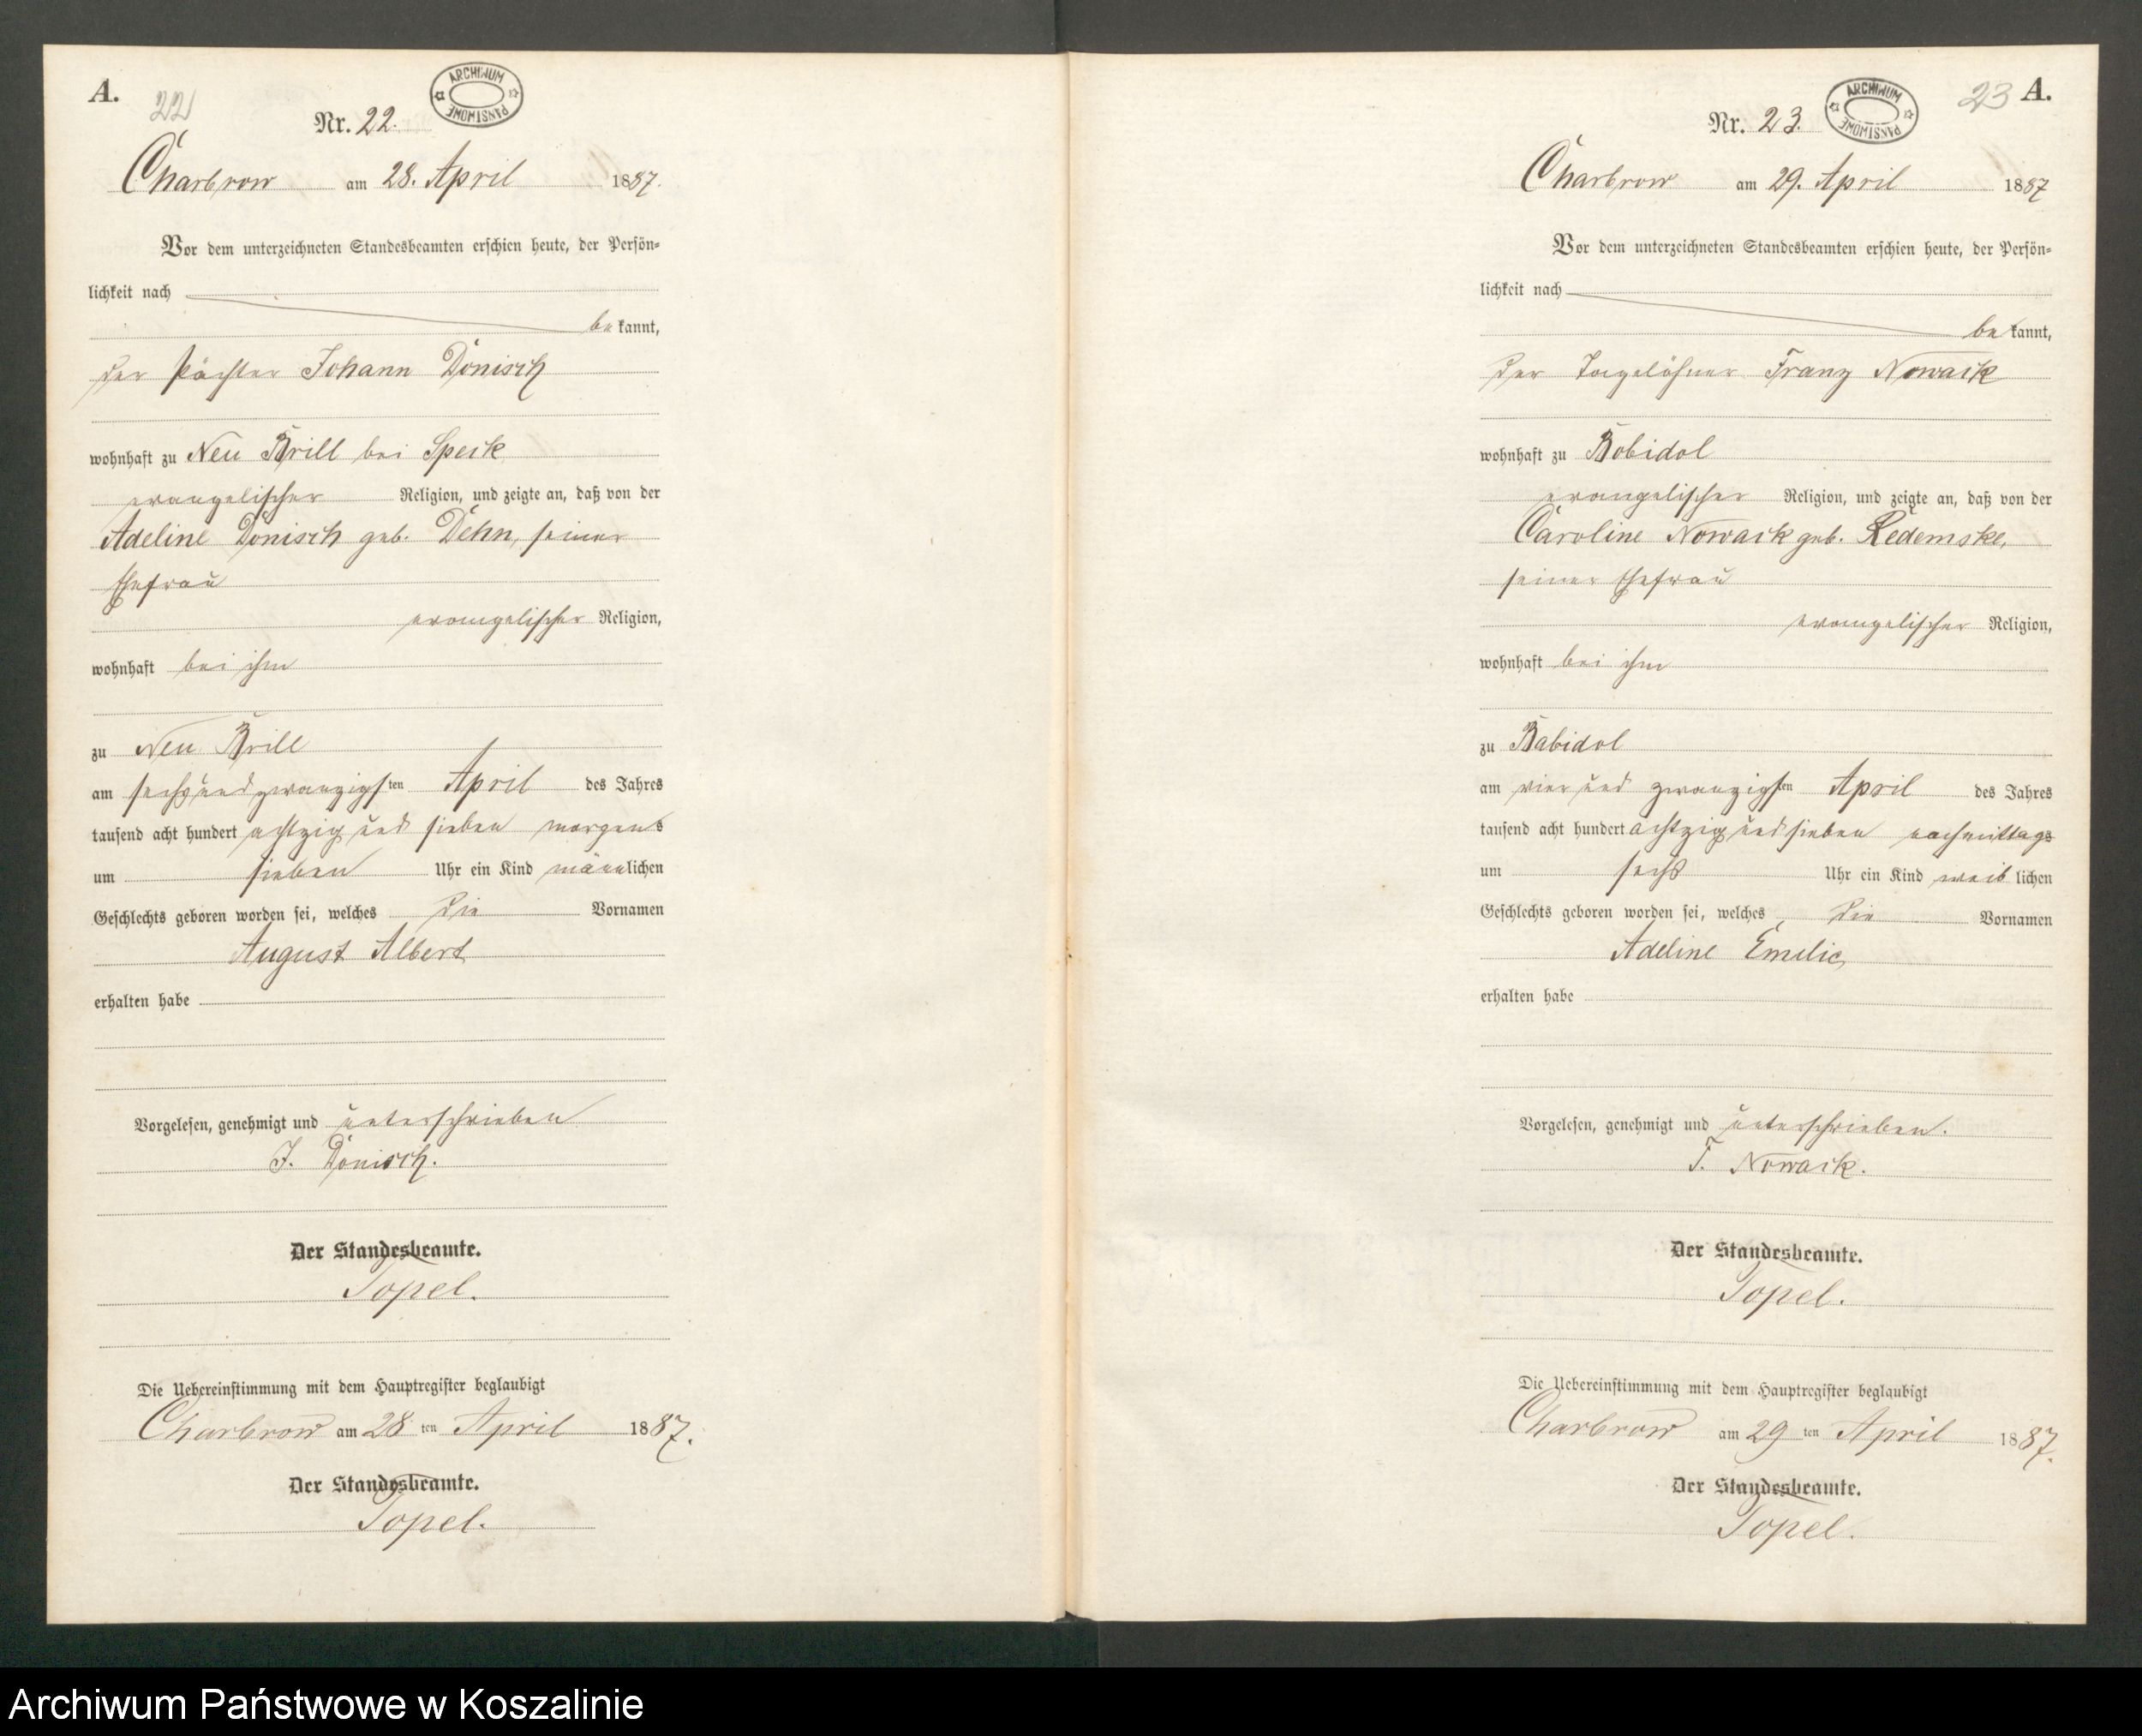 A.
22
Nr. 22.
ARCHIWUM PAŃSTWOWE
Charbrow am 28. April 1887.
Vor dem unterzeichneten Standesbeamten erschien heute, der Persön-
lichkeit nach
be kannt,
der Pächter Johann Dönisch
wohnhaft zu Neu Brill bei Speck
evangelischer Religion, und zeigte an, daß von der
Adeline Dönisch geb. Dehn, seiner
Ehefrau
evangelischer Religion,
wohnhaft bei ihm
zu Neu Brill
am sechsundzwanzigsten April des Jahres
tausend acht hundert achtzig und sieben morgens
um sieben Uhr ein Kind männlichen
Geschlechts geboren worden sei, welches die Vornamen
August Albert
erhalten habe
Vorgelesen, genehmigt und unterschrieben
J. Dönisch.
Der Standesbeamte.
Topel.
Die Uebereinstimmung mit dem Hauptregister beglaubigt
Charbrow am 28 ten April 1887.
Der Standesbeamte.
Topel.
23 A.
Nr. 23.
ARCHIWUM PAŃSTWOWE
Charbrow am 29. April 1887
Vor dem unterzeichneten Standesbeamten erschien heute, der Persön-
lichkeit nach
be kannt,
der Tagelöhner Franz Nowack
wohnhaft zu Bobidol
evangelischer Religion, und zeigte an, daß von der
Caroline Nowack geb. Redemske,
seiner Ehefrau
evangelischer Religion,
wohnhaft bei ihm
zu Babidol
am vier und zwanzigsten April des Jahres
tausend acht hundert achtzig und sieben nachmittags
um sechs Uhr ein Kind weib lichen
Geschlechts geboren worden sei, welches die Vornamen
Adeline Emilie
erhalten habe
Vorgelesen, genehmigt und unterschrieben.
F. Nowack.
Der Standesbeamte.
Topel.
Die Uebereinstimmung mit dem Hauptregister beglaubigt
Charbrow am 29 ten April 1887.
Der Standesbeamte.
Topel.
Archiwum Państwowe w Koszalinie